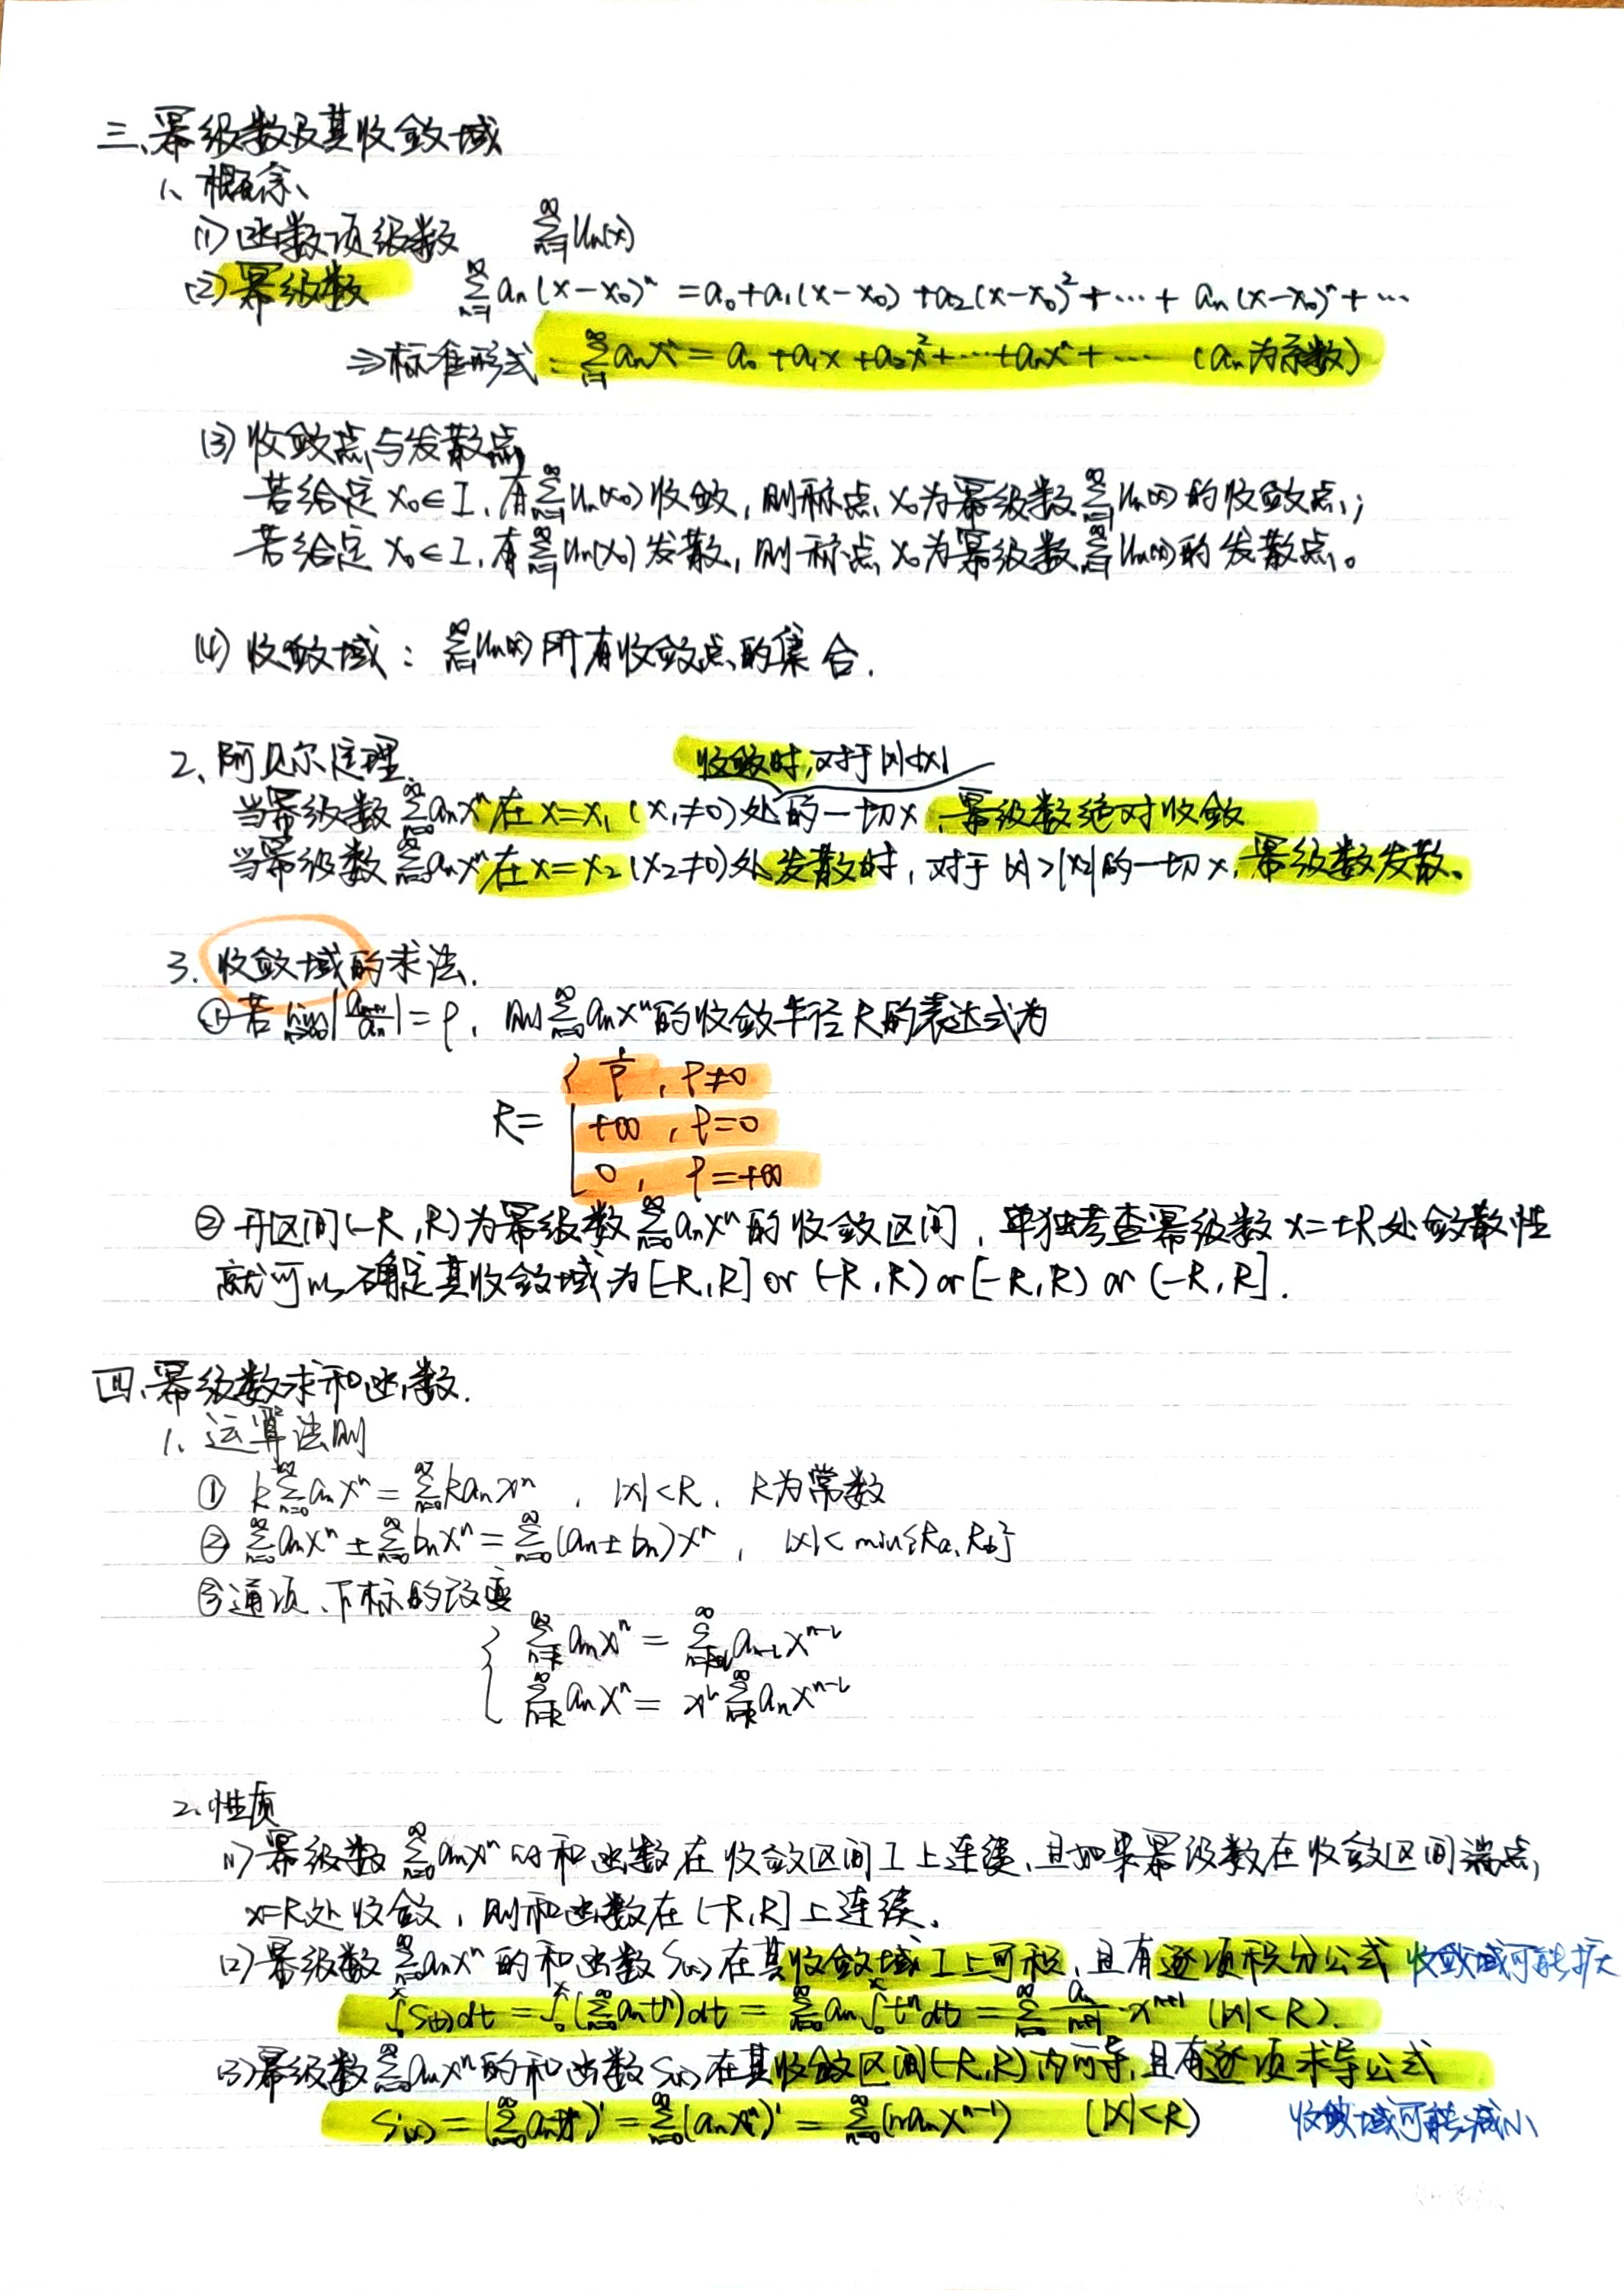 三、幂级数及其收敛域
1、概念、
(1)函数项级数 ∑_{n=1}^{∞} Un(x)
(2)幂级数 ∑_{n=1}^{∞} an(x-x0)^n = a0+a1(x-x0)+a2(x-x0)^2+…+an(x-x0)^n+…
⇒标准形式: ∑_{n=1}^{∞} anx^n = a0+a1x+a2x^2+…+anx^n+… (an为系数)
(3)收敛点与发散点
若给定 x0∈I,有∑_{n=1}^{∞} Un(x0)收敛,则称点x0为幂级数∑_{n=1}^{∞} Un(x)的收敛点;
若给定 x0∈I,有∑_{n=1}^{∞} Un(x0)发散,则称点x0为幂级数∑_{n=1}^{∞} Un(x)的发散点。
(4)收敛域: ∑_{n=1}^{∞} Un(x)所有收敛点的集合.
2、阿贝尔定理. 收敛时,对于|x|<|x1|
当幂级数∑_{n=0}^{∞} anx^n在x=x1(x1≠0)处的一切x,幂级数绝对收敛
当幂级数∑_{n=0}^{∞} anx^n在x=x2(x2≠0)处发散时,对于|x|>|x2|的一切x,幂级数发散。
3.收敛域的求法.
①若lim_{n→∞}|an+1/an|=ρ,则∑_{n=0}^{∞} anx^n的收敛半径R的表达式为
{ 1/ρ,ρ≠0
R= +∞,ρ=0
0,ρ=+∞
②开区间(-R,R)为幂级数∑_{n=0}^{∞} anx^n的收敛区间,单独考查幂级数x=±R处敛散性
就可以确定其收敛域为[-R,R] or (-R,R) or [-R,R) or (-R,R].
四、幂级数求和函数.
1、运算法则
① k∑_{n=0}^{∞} anx^n=∑_{n=0}^{∞} kanx^n,|x|<R,k为常数
② ∑_{n=0}^{∞} anx^n±∑_{n=0}^{∞} bnx^n=∑_{n=0}^{∞}(an±bn)x^n,|x|<min{Ra,Rb}
③通项、下标的改变
{ ∑_{n=k}^{∞} anx^n=∑_{n=k+l}^{∞} an-l x^{n-l}
∑_{n=k}^{∞} anx^n=x^l∑_{n=k}^{∞} anx^{n-l}
2.性质
(1)幂级数∑_{n=0}^{∞} anx^n的和函数在收敛区间I上连续,且如果幂级数在收敛区间端点,
x=R处收敛,则和函数在(-R,R]上连续.
(2)幂级数∑_{n=0}^{∞} anx^n的和函数S(x)在其收敛域I上可积,且有逐项积分公式 收敛域可能扩大
∫_0^x S(t)dt=∫_0^x(∑_{n=0}^{∞} ant^n)dt=∑_{n=0}^{∞} an∫_0^x t^n dt=∑_{n=0}^{∞} an/(n+1)·x^{n+1} (|x|<R).
(3)幂级数∑_{n=0}^{∞} anx^n的和函数S(x)在其收敛区间(-R,R)内可导,且有逐项求导公式
S'(x)=(∑_{n=0}^{∞} anx^n)'=∑_{n=0}^{∞}(anx^n)'=∑_{n=0}^{∞}(nanx^{n-1}) (|x|<R) 收敛域可能减小